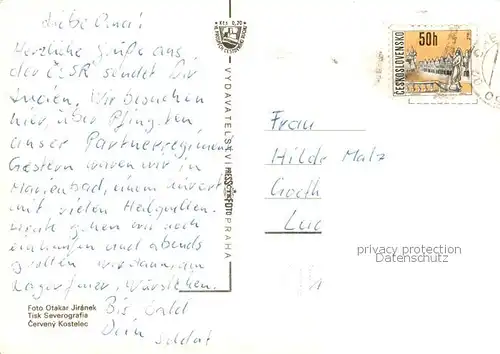 Liebe Oma!
Herzliche Grüße aus
der ČSSR sendet Dir
Lucien. Wir besuchen
hier, über Pfingsten,
unser Partnerregiment.
Gestern waren wir in
Marienbad, einem Kurort
mit vielen Heilquellen.
Heute gehen wir noch
einkaufen und abends
grillen wir dann, am
Lagerfeuer, Würstchen.
Bis bald
Dein
Soldat
Foto Otakar Jiránek
Tisk Severografia
Červený Kostelec
Kčs 0,70
VYDAVATELSTVÍ PRESSFOTO PRAHA
ČESKOSLOVENSKO
50h
Frau
Hilde Malz
Goeth
Luc
privacy protection
Datenschutz